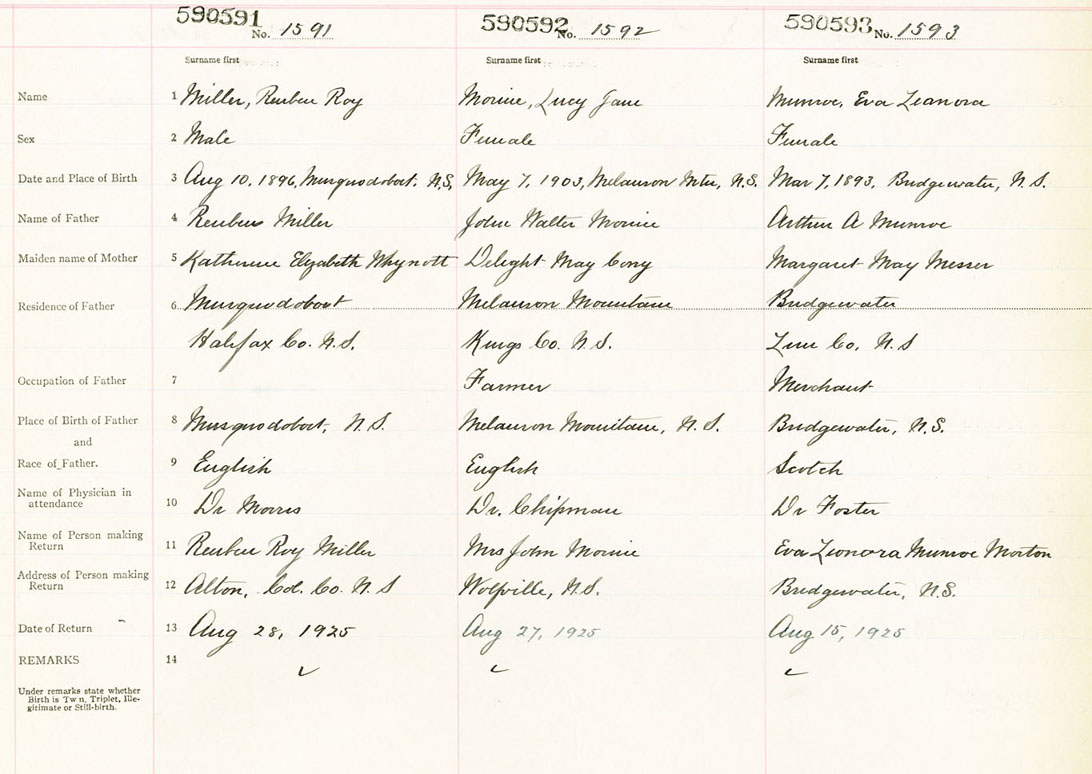 590591 No. 1591 590592 No. 1592 590593 No. 1593
Surname first Surname first Surname first
Name 1 Miller, Reuben Roy Morine, Lucy Jane Munroe, Eva Leanora
Sex 2 Male Female Female
Date and Place of Birth 3 Aug 10, 1896, Musquodoboit, N.S, May 7, 1903, Melanson Mtn, N.S. Mar 7, 1893, Bridgewater, N.S.
Name of Father 4 Reuben Miller John Walter Morine Arthur A Munroe
Maiden name of Mother 5 Katherine Elizabeth Whynott Delight May Margaret May Messer
Residence of Father 6 Musquodoboit Melanson Mountain Bridgewater
Halifax Co. N.S. Kings Co. N.S. Lun Co, N.S
Occupation of Father 7 Farmer Merchant
Place of Birth of Father 8 Musquodoboit, N.S. Melanson Mountain, N.S. Bridgewater, N.S.
and
Race of Father. 9 English English Scotch
Name of Physician in attendance 10 Dr Morris Dr. Chipman Dr Foster
Name of Person making Return 11 Reuben Roy Miller Mrs John Morine Eva Leonora Munroe Morton
Address of Person making Return 12 Alton, Col. Co. N.S Wolfville, N.S. Bridgewater, N.S.
Date of Return 13 Aug 28, 1925 Aug 27, 1925 Aug 15, 1925
REMARKS 14
Under remarks state whether
Birth is Tw n, Triplet, Ille-
gitimate or Still-birth.